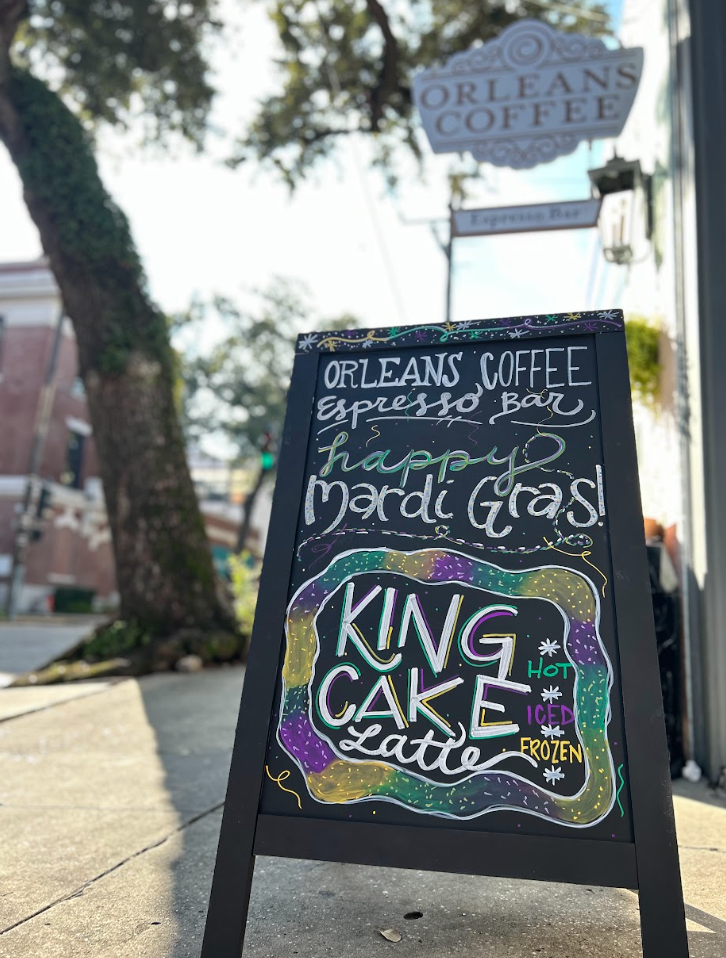 ORLEANS
COFFEE
Espresso Bar
ORLEANS COFFEE
Espresso Bar
happy
Mardi Gras!
KING
CAKE
Latte
HOT
ICED
FROZEN